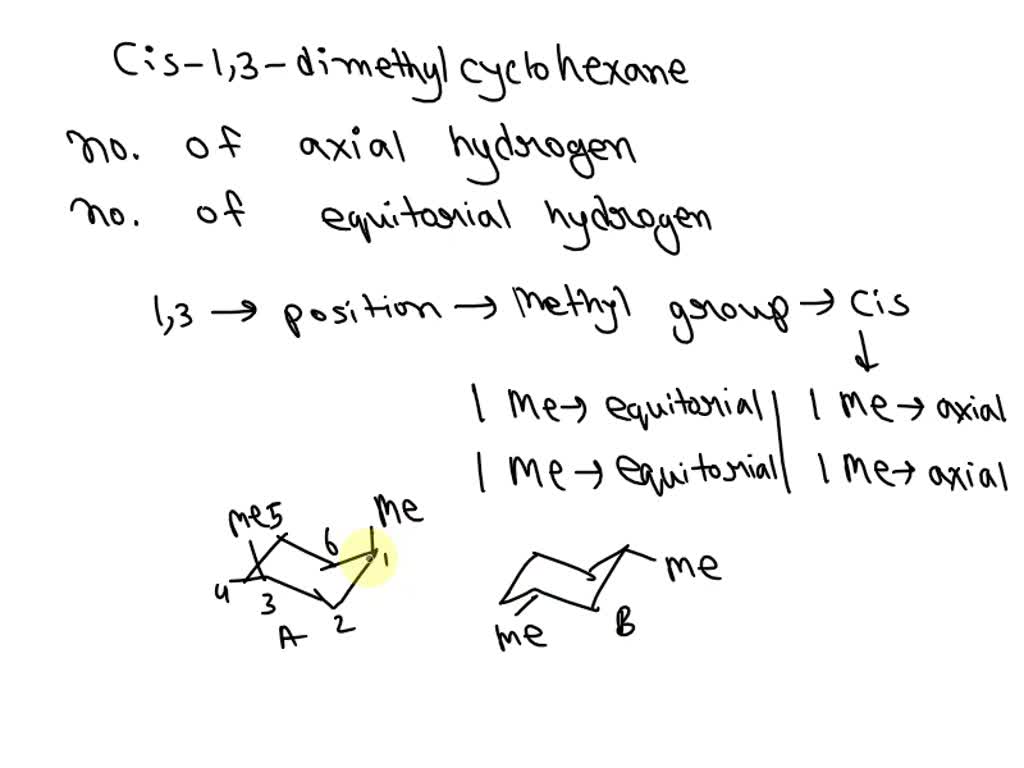 Cis-1,3-dimethylcyclohexane
no. of axial hydrogen
no. of equitorial hydrogen
1,3 → position → Methyl group → cis
↓
1 Me → equitorial | 1 Me → axial
1 Me → equitorial | 1 Me → axial
Me 5 6 Me 1
4 3 2 A
Me
Me B